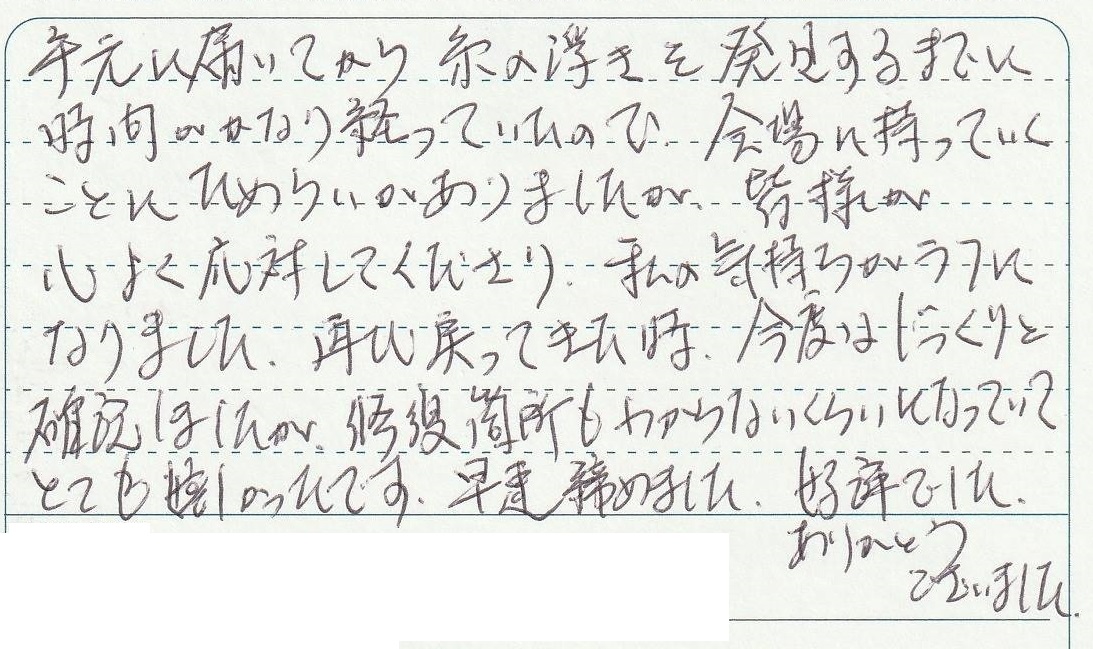 手元に届いてから 糸の浮きを 発見するまでに
時間がかなり経っていたので、会場に持っていく
ことに ためらいがありましたが、皆様が
心よく応対してくださり、私の気持ちがラフに
なりました。再び戻ってきた時、今度はじっくりと
確認しましたが、修復箇所もわからないくらいになっていて
とても嬉しかったです。早速 締めました。好評でした。
ありがとう
ございました。